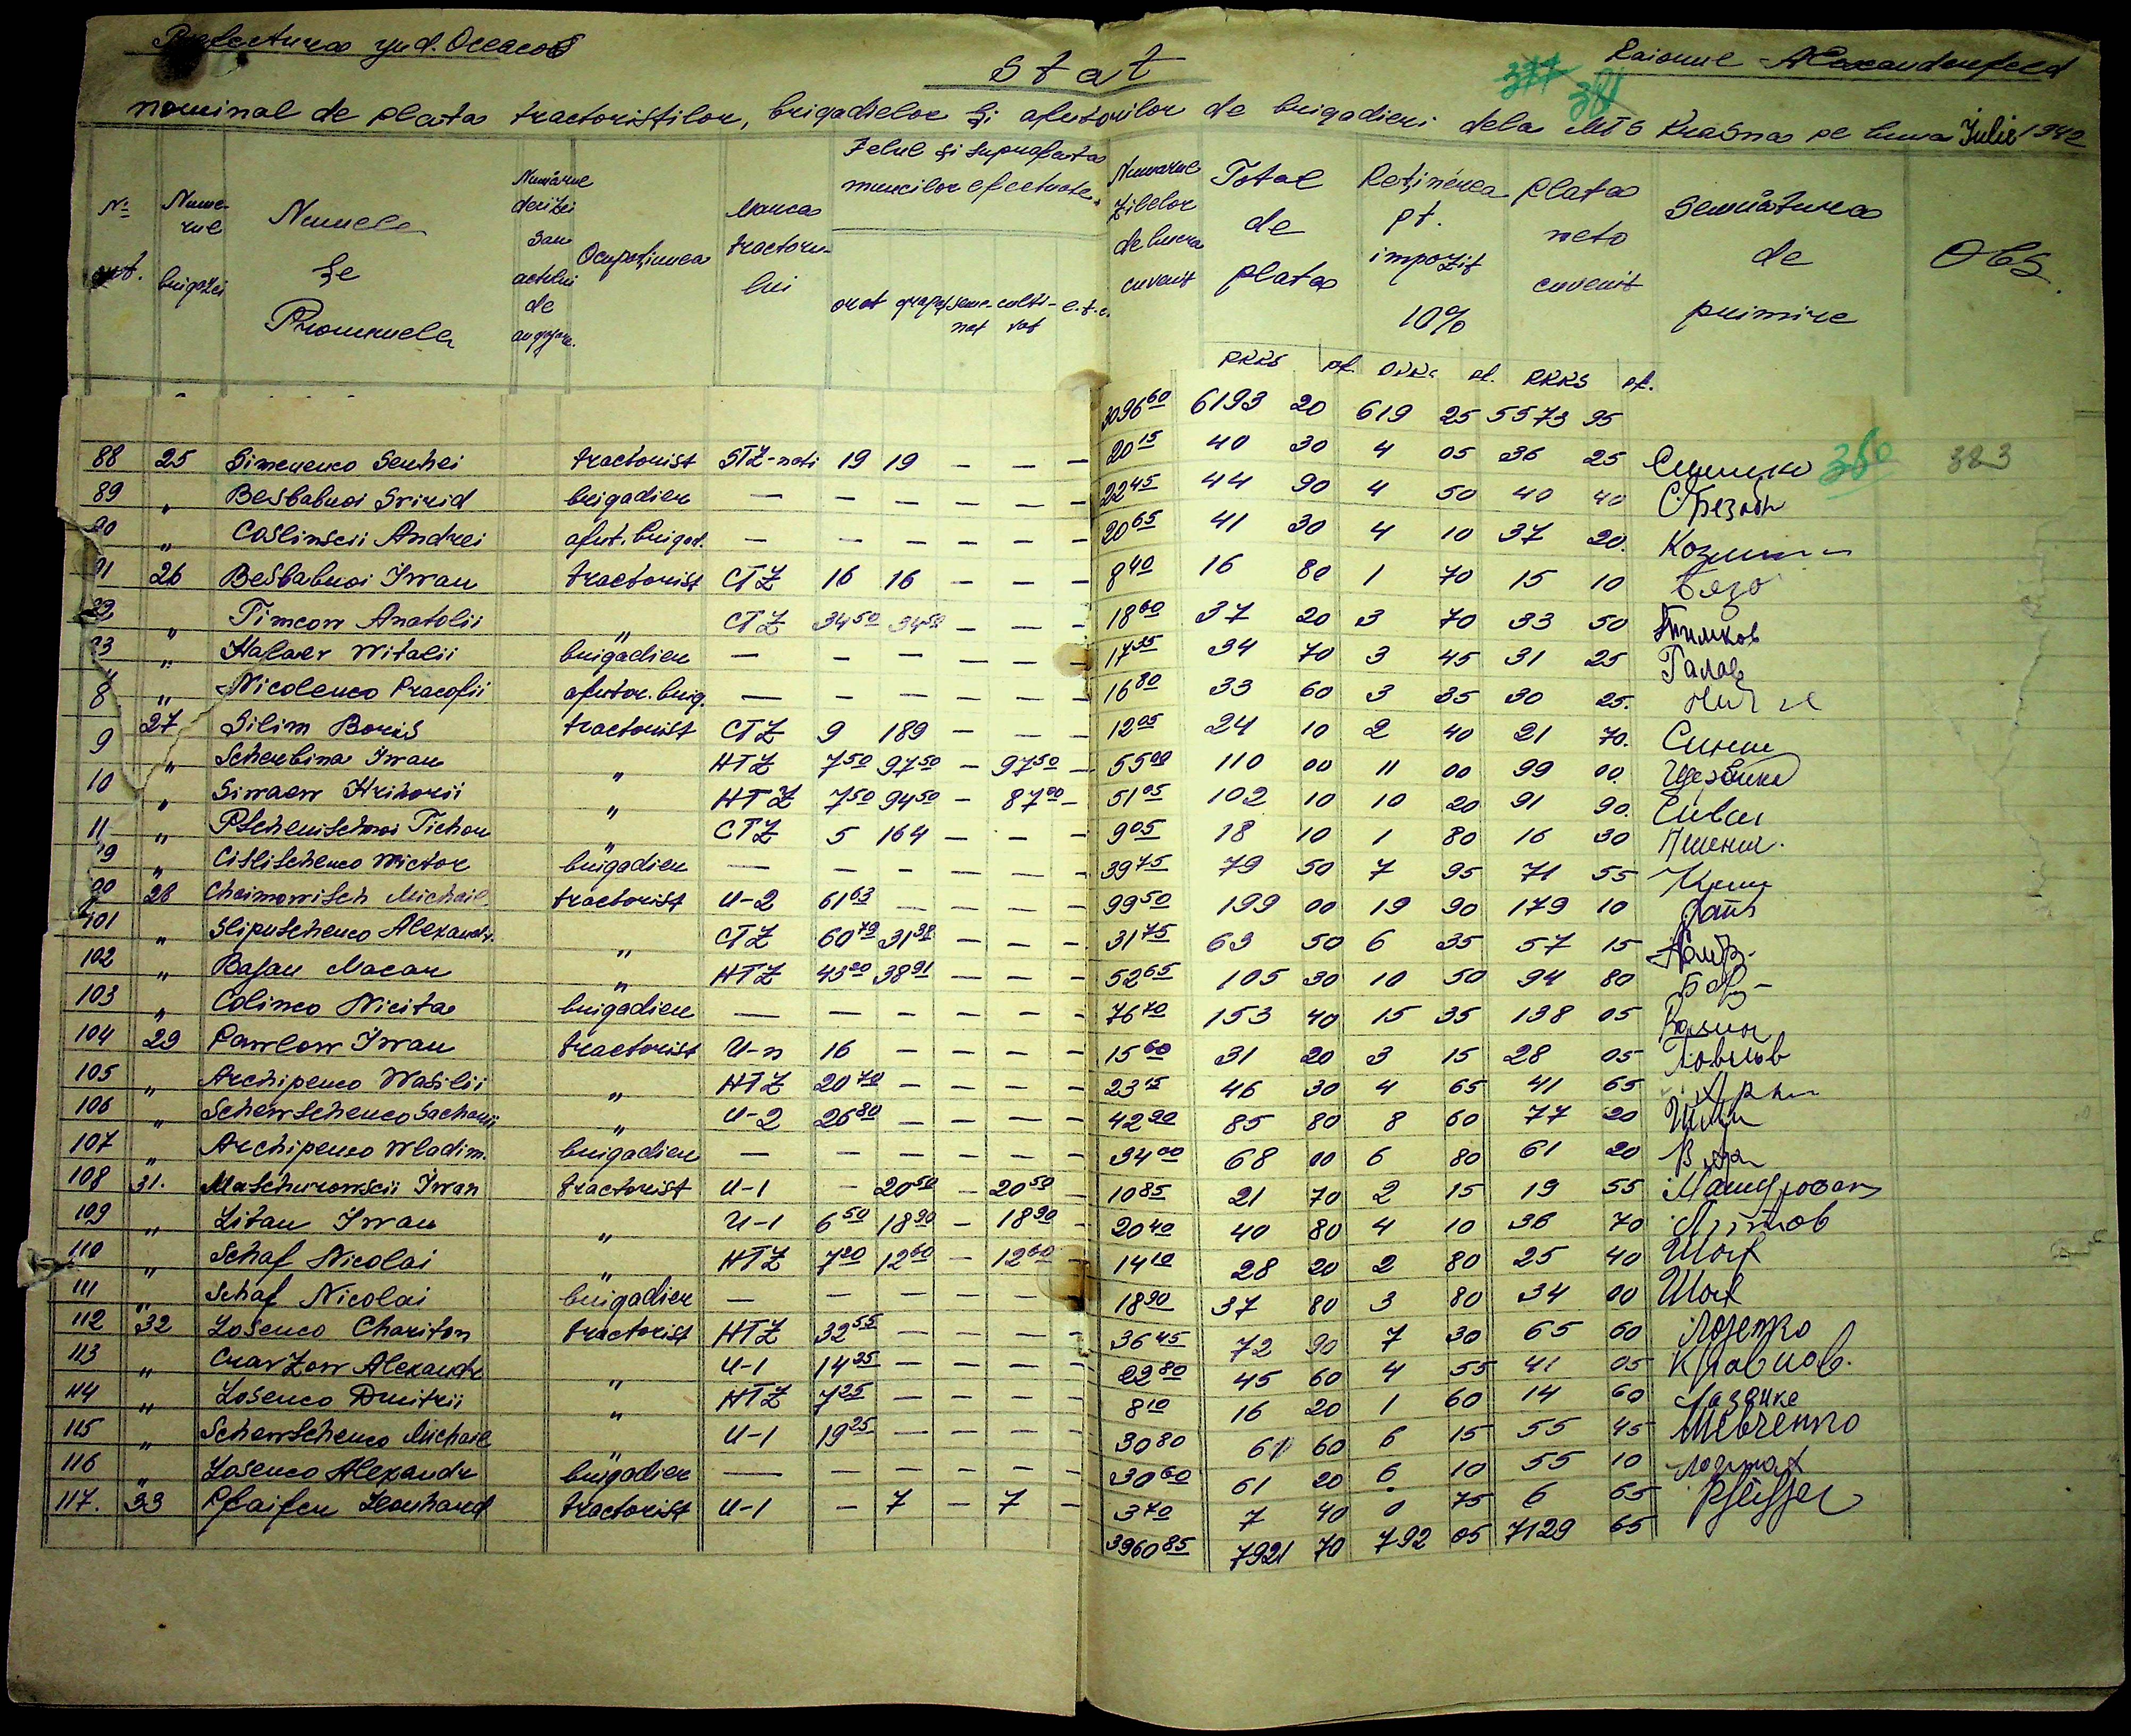 Prefectura jud. Oceacov
Raionul Alexandorfeld
Stat
377 381
nominal de plata tractoriștilor, brigadielor și ajutorilor de brigadieri dela MTS Krasna pe luna Julie 1942
№ crt. Nume-rul brigăzei Numele Șe Pronumele Numărul derizei sau actului de angajare. Ocupațiunea Marca tractoru-lui Felul și suprafața muncilor efectuate. arat grapat seme-nat culti-vat e.t.c. Numărul zilelor de lucru cuvenit Total de plata Reținerea pt. impozit 10% Plata neto cuvenit Semnătura de primire Obs.
RKKS pf. RKKS pf. RKKS pf.
3096 60 6193 20 619 25 5573 95
88 25 Simenenco Serhei tractorist STZ-nati 19 19 — — — 20 15 40 30 4 05 36 25 380 383
89 " Besbabnoi Svirid brigadier — — — — — — 22 45 44 90 4 50 40 40
90 " Coslinscii Andrei ajut. brigad. — — — — — — 20 65 41 30 4 10 37 20.
91 26 Besbabnoi Iwan tractorist CTZ 16 16 — — — 8 40 16 80 1 70 15 10
92 " Timcow Anatolii " CTZ 34 50 34 50 — — — 18 60 37 20 3 70 33 50 Тимков
93 " Halaev Witalii brigadier — — — — — — 17 35 34 70 3 45 31 25 Галаев
8 " Nicolenco Pracofii ajutor. brig. — — — — — — 16 80 33 60 3 35 30 25.
9 27 Silim Boris tractorist CTZ 9 189 — — — 12 05 24 10 2 40 21 70.
" Scherbina Iwan " HTZ 7 50 97 50 — 97 50 — 55 00 110 00 11 00 99 00. Щербина
10 " Siwaew Hrihorii " HTZ 7 50 94 50 — 87 00 — 51 05 102 10 10 20 91 90.
11 " Pschenischnoi Tichon " CTZ 5 164 — — — 9 05 18 10 1 80 16 30 Пшенич.
99 " Cislischenco Wictor brigadier — — — — — — 39 75 79 50 7 95 71 55
00 28 Chaimowisch Michail tractorist U-2 61 63 — — — — 99 50 199 00 19 90 179 10
101 " Slipuschenco Alexandr. " CTZ 60 79 31 38 — — — 31 75 63 50 6 35 57 15
102 " Bajan Macar " HTZ 43 20 38 91 — — — 52 65 105 30 10 50 94 80
103 " Colinco Nicita brigadier — — — — — — 76 70 153 40 15 35 138 05
104 29 Pawlow Iwan tractorist U-n 16 — — — — 15 60 31 20 3 15 28 05 Павлов
105 " Archipenco Wasilii " HTZ 20 70 — — — — 23 15 46 30 4 65 41 65
106 " Schewschenco Sacharii " U-2 26 80 — — — — 42 90 85 80 8 60 77 20
107 " Archipenco Wladim. brigadier — — — — — — 34 00 68 00 6 80 61 20
108 31. Maschurowscii Iwan tractorist U-1 — 20 50 — 20 50 — 10 85 21 70 2 15 19 55
109 " Litau Iwan " U-1 6 50 18 90 — 18 90 — 20 40 40 80 4 10 36 70
110 " Schaf Nicolai " HTZ 7 20 12 60 — 12 60 — 14 10 28 20 2 80 25 40 Шаф
111 " Schaf Nicolai brigadier — — — — — — 18 90 37 80 3 80 34 00 Шаф
112 32 Losenco Chariton tractorist HTZ 32 55 — — — — 36 45 72 90 7 30 65 60 Лозенко
113 " Crawzow Alexandr " U-1 14 35 — — — — 22 80 45 60 4 55 41 05 Кравцов.
114 " Losenco Dmitrii " HTZ 7 25 — — — — 8 10 16 20 1 60 14 60
115 " Schewschenco Michail " U-1 19 25 — — — — 30 80 61 60 6 15 55 45 Шевченко
116 " Losenco Alexandr brigadier — — — — — — 30 60 61 20 6 10 55 10
117. 33 Pfaifer Leonhard tractorist U-1 — 7 — 7 — 3 70 7 40 0 75 6 65 Pfeiffer
3960 85 7921 70 792 05 7129 65